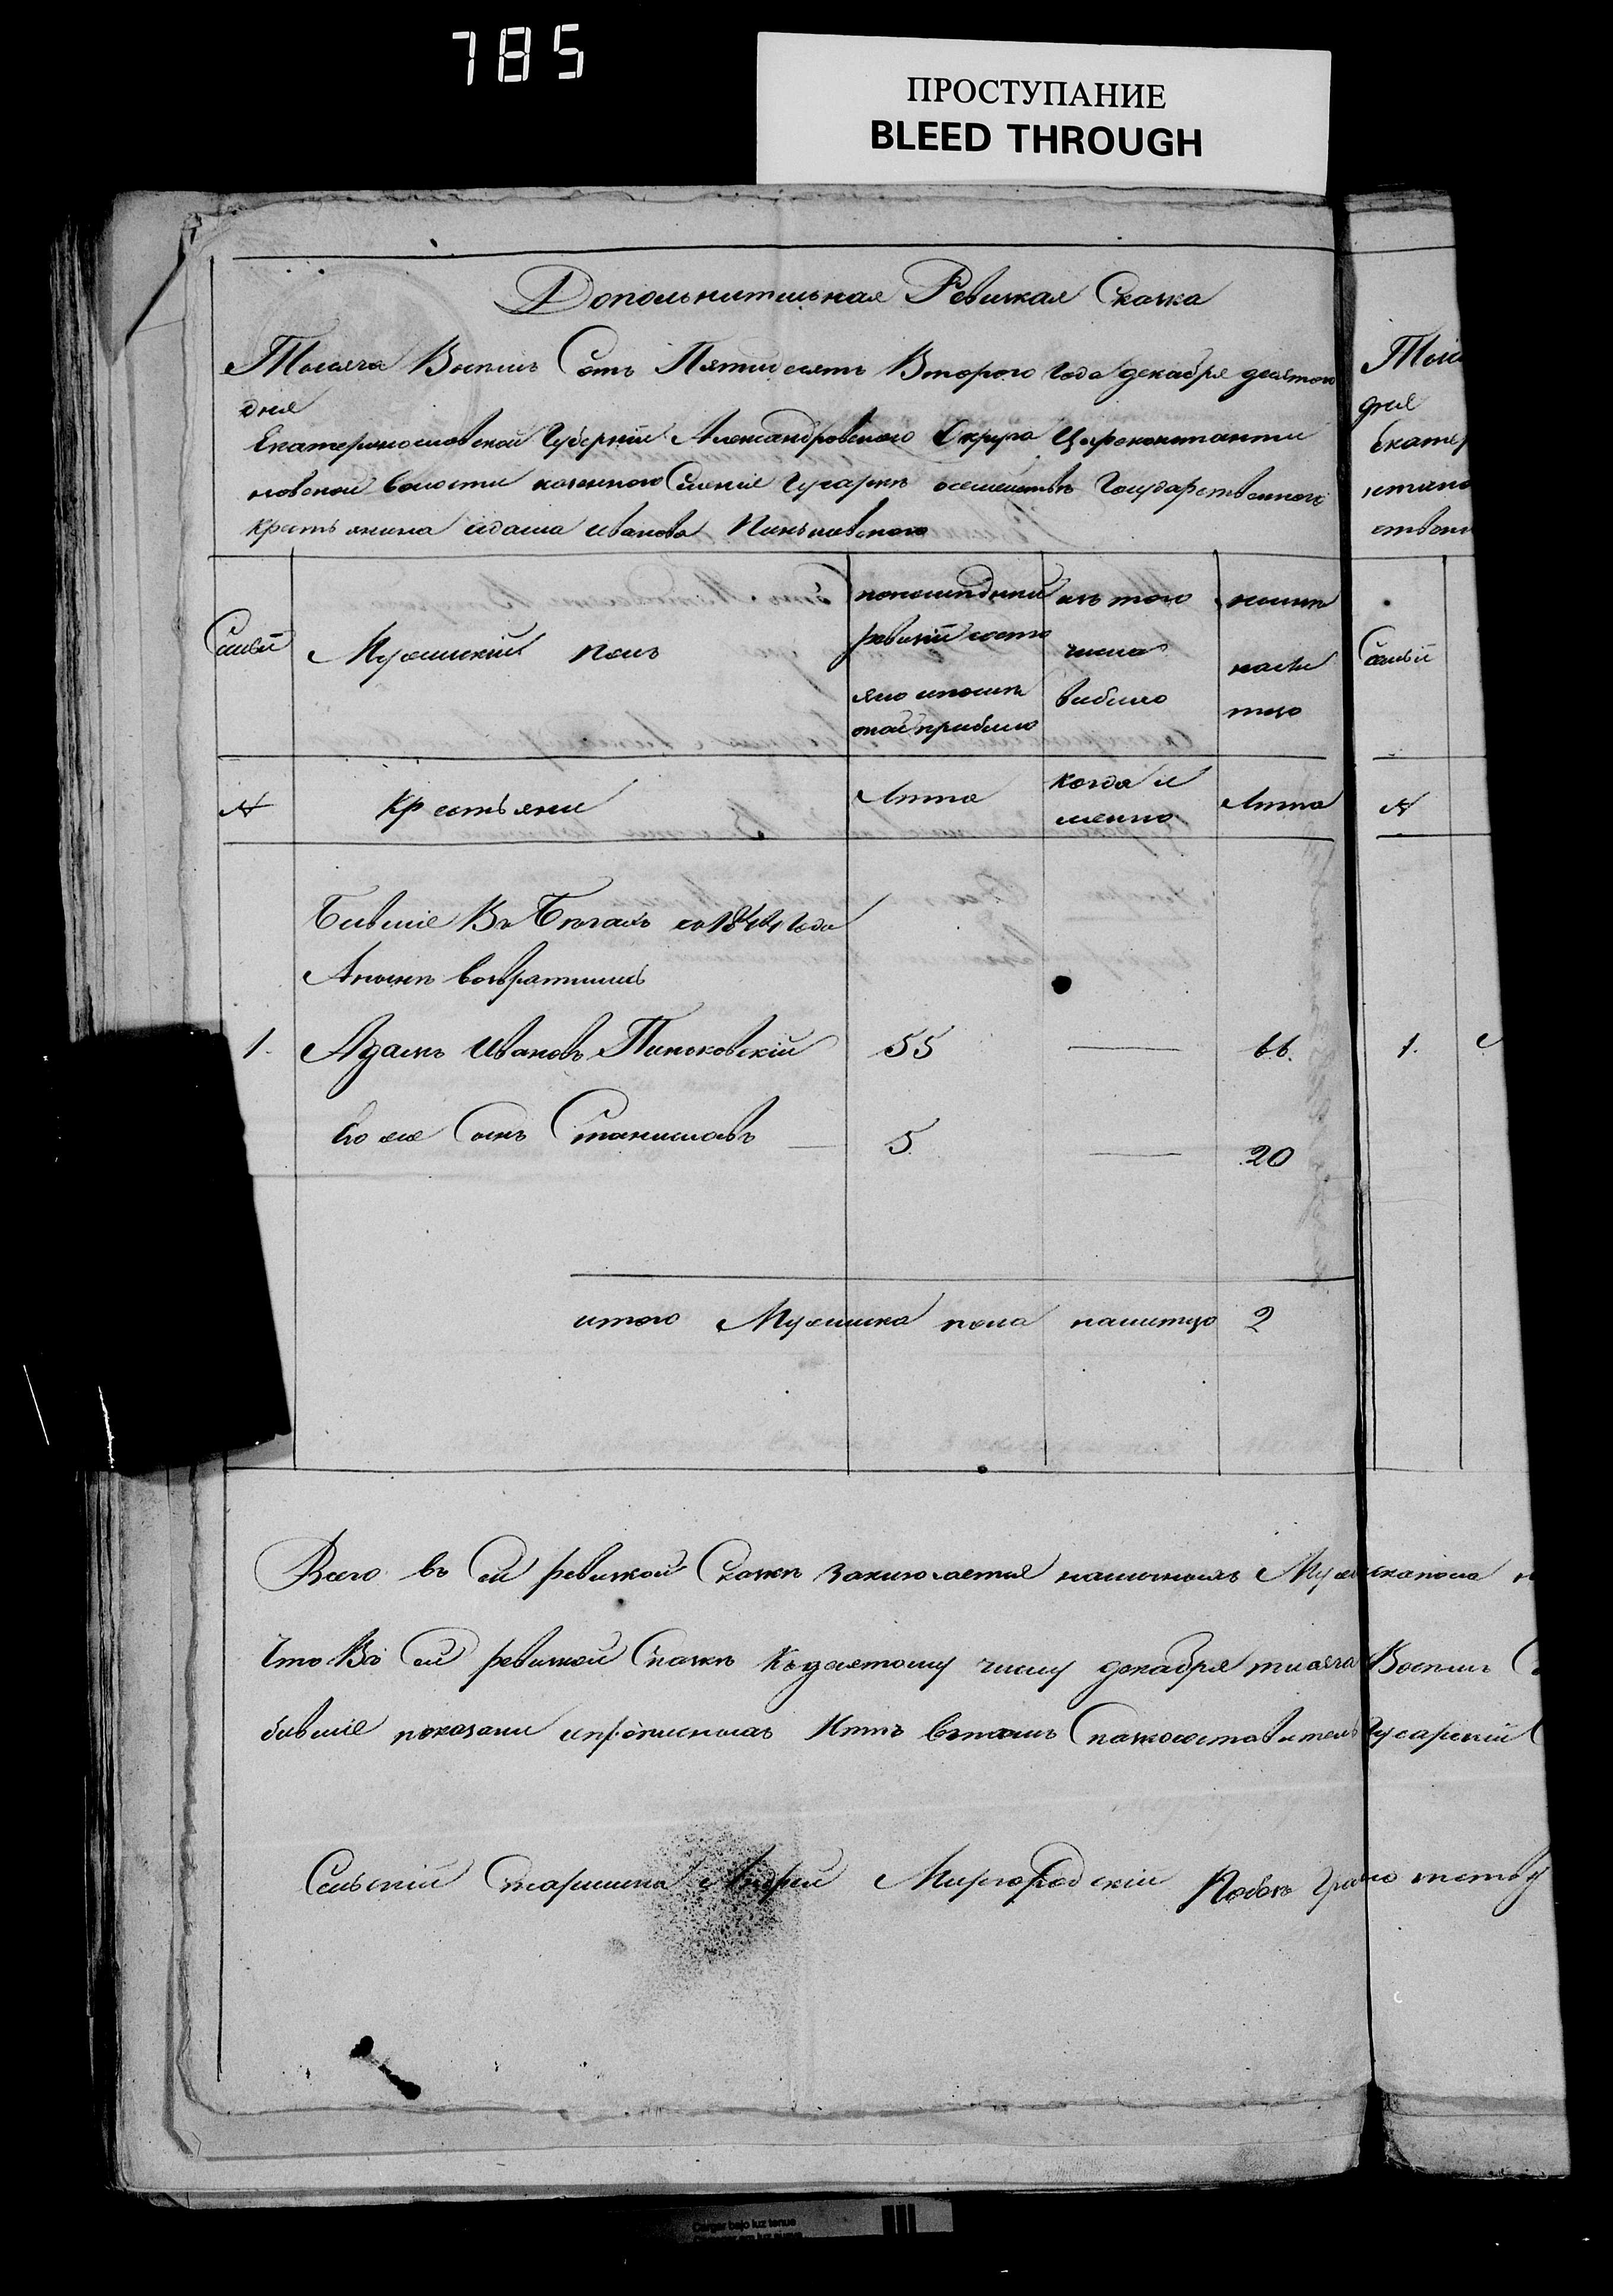 785
ПРОСТУПАНИЕ
BLEED THROUGH
Дополнительная Ревизкая Скаска
Тысяча Восемь Сотъ Пятидесятъ Второго года декабря десятого
дня
Екатеринославской Губерніи Александровского Округа Цареконстанти
новской волости казенного Селенія Гусарки осемействѣ Государственного
крестьянина адама иванова Пиньковского
Семьи
Мужский полъ
попоследнеи
ревизіи состо
яло ипосли
оной прибыло
изъ того
числа
выбило
ныне
нали
тцо
№
Крестьяни
Лѣта
когда и
менно
Лѣта
Бывшіе Въ Бѣгахъ со 1844 года
Аныне возвратились
1. Адамъ Ивановъ Пиньковскій 55 — 66.
Его же сынъ Станиславъ — 5. — 20
итого Мужиска пола налитцо 2
Всего въ сей ревизкой Скаске заключается наличныхъ Мужиска пола
Что Въ сей ревизкой Скаске къ десятому числу декабря тысяча Восемь
бывшіе показани ипрописныхъ Нѣтъ Вътомъ Сказкосоставитель Гусарский
Сельскій Старшина Андрей Миргородскій
Тыся
дня
Екатер
нстано
ствен
Семьи
№
1.